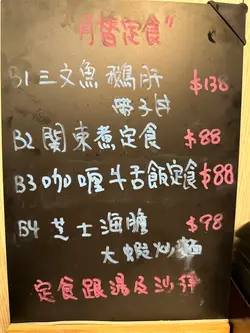 月替定食"
B1 三文魚 鵝肝 $138
帶子丼
B2 関東煮定食 $88
B3 咖喱牛舌飯定食 $88
B4 芝士海膽 $98
大蝦炒麵
定食跟湯及沙律